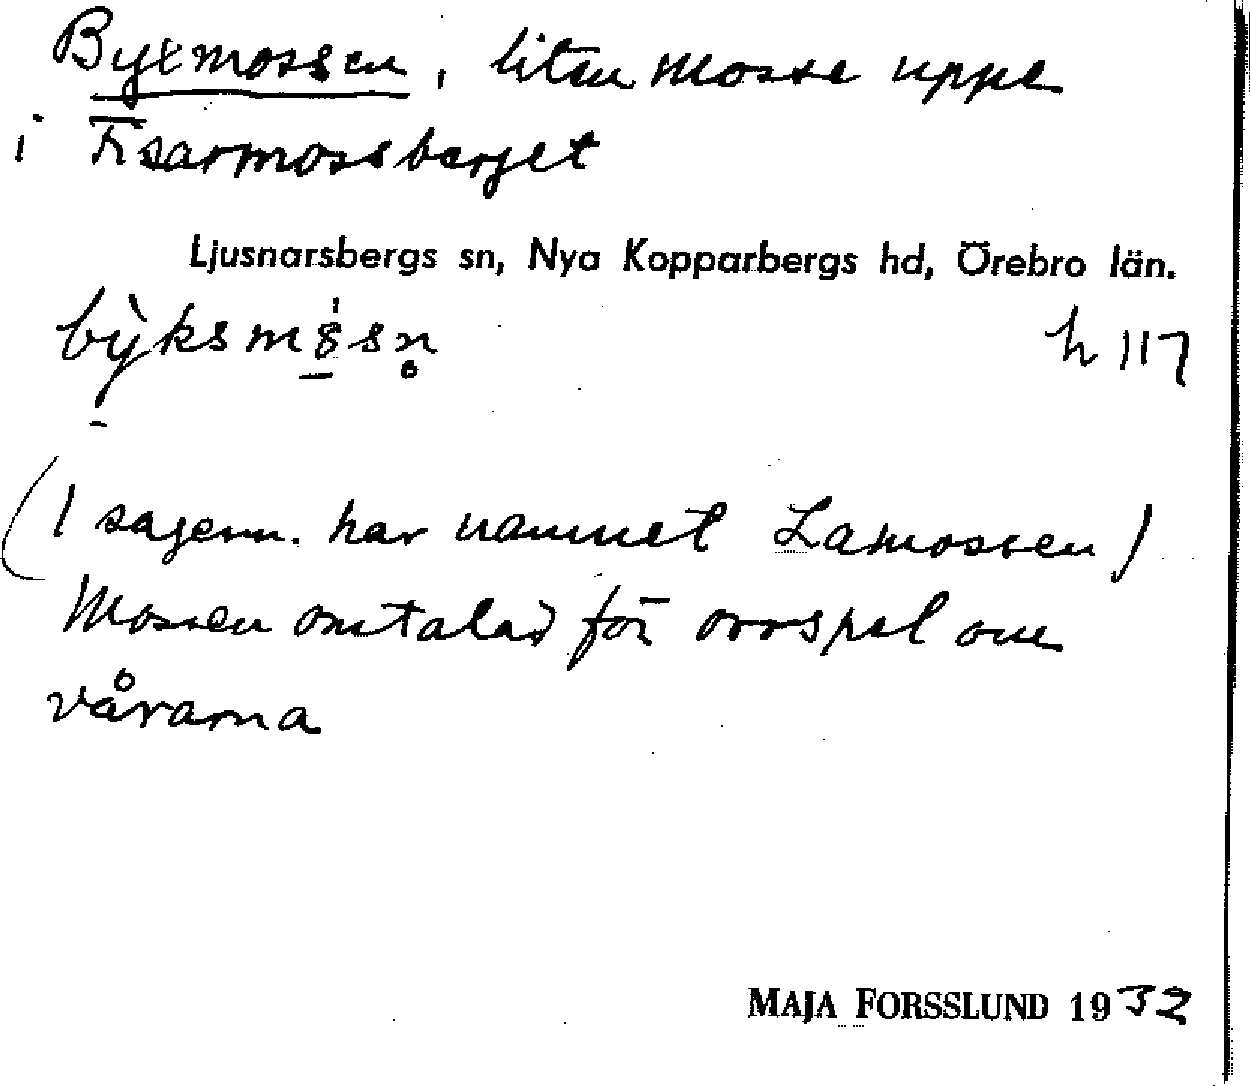 Byxmossen, liten mosse uppe
i Fisarmossberget
Ljusnarsbergs sn, Nya Kopparbergs hd, Örebro län.
h 117
(I sagesm. har namnet Lamossen)
Mossen omtalad för orrspel om
vårarna
MAJA FORSSLUND 1932